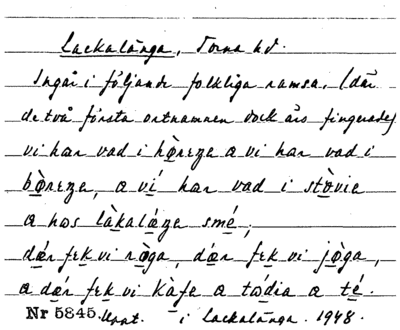 Lackalänga, Torna hd.
Ingår i följande folkliga ramsa, (där
de två första ortnamnen dock äro fingerade)
vi har vad i hǫ̀reze a vi har vad i
bǫ̀reze, a ví har vad i stǫ̀vie
a hos làkalæze smé;
dær fɛk vi rǫ̀ga, dær fɛk vi jǫ̀ga,
a dær fɛk vi kàfe a tǿdia a té.
Nr 5845. Uppt. i Lackalänga. 1948.